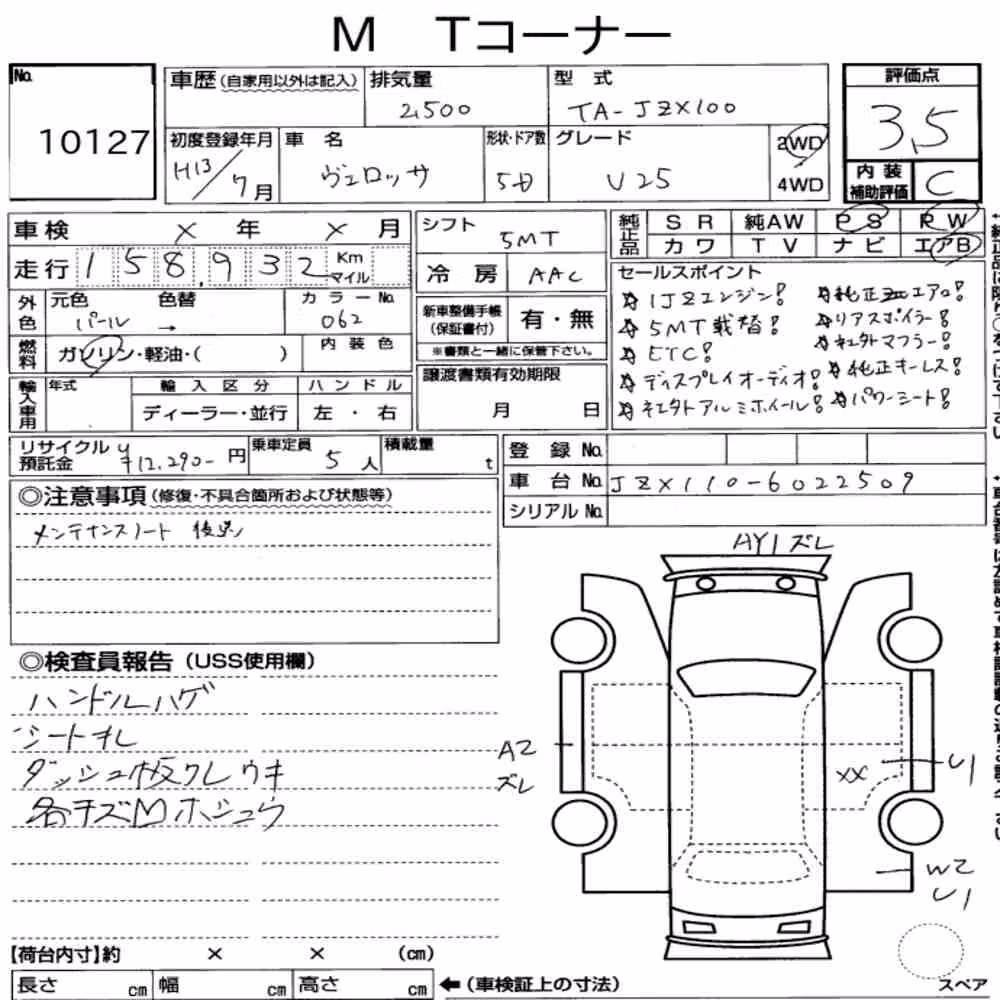 M Tコーナー
No.
10127
車歴(自家用以外は記入)
排気量
2,500
型式
TA-JZX100
評価点
3,5
初度登録年月
H13/7月
車名
ヴェロッサ
形状・ドア数
5D
グレード
V25
2WD
4WD
内装
補助評価
C
車検 × 年 × 月
走行 158,932 Km
マイル
シフト
5MT
冷房 AAC
純正品
SR 純AW PS PW
カワ TV ナビ エアB
外色
元色 色替
パール →
カラーNo.
062
新車整備手帳
(保証書付)
有・無
※書類と一緒に保管下さい。
燃料
ガソリン・軽油・( )
内装色
譲渡書類有効期限
月 日
セールスポイント
1JZエンジン!
5MT載替!
ETC!
ディスプレイオーディオ!
社外アルミホイール!
純正エアロ!
リアスポイラー!
社外マフラー!
純正キーレス!
パワーシート!
輸入車用
年式
輸入区分
ディーラー・並行
ハンドル
左・右
リサイクル
預託金
¥12,290- 円
乗車定員
5人
積載量
t
登録No.
車台No. JZX110-6022509
シリアルNo.
◎注意事項(修復・不具合箇所および状態等)
メンテナンスノート 後送
◎検査員報告(USS使用欄)
ハンドルハゲ
シートオレ
ダッシュ板ワレウキ
各キズMホシュウ
AY1ズレ
A2
ズレ
XX
U1
W2
U1
【荷台内寸】約 × × (cm)
長さ cm 幅 cm 高さ cm
←(車検証上の寸法)
スペア